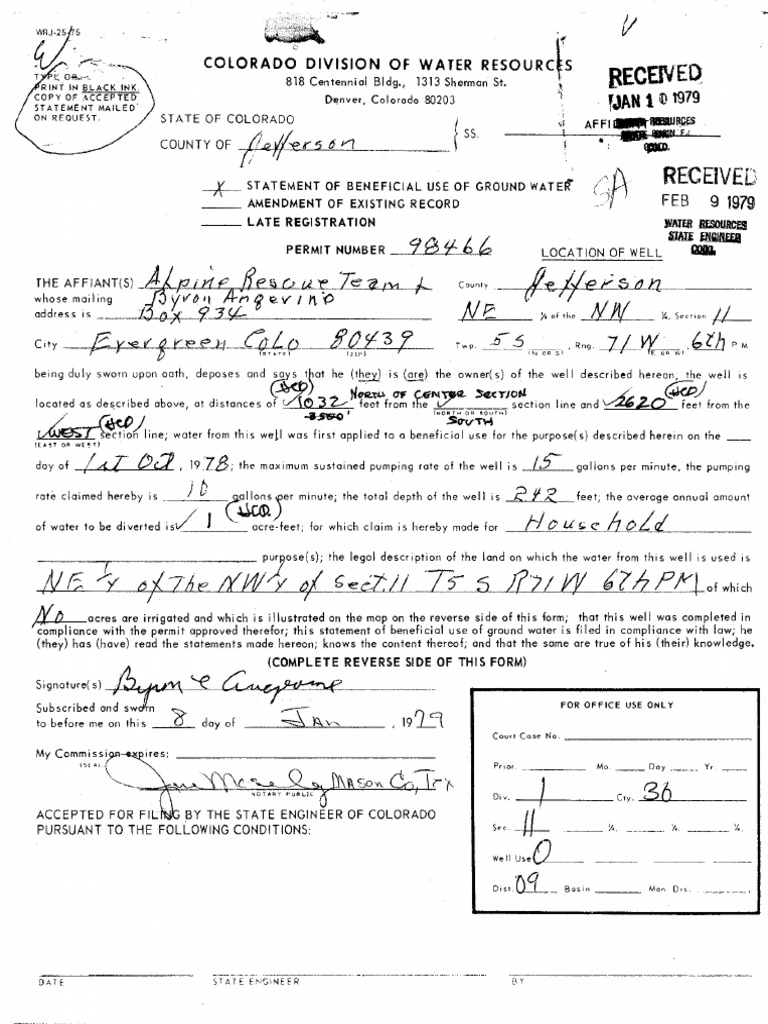 WRJ-25-75
COLORADO DIVISION OF WATER RESOURCES
818 Centennial Bldg., 1313 Sherman St.
Denver, Colorado 80203
TYPE OR
PRINT IN BLACK INK.
COPY OF ACCEPTED
STATEMENT MAILED
ON REQUEST.
RECEIVED
JAN 10 1979
STATE OF COLORADO
COUNTY OF Jefferson
SS.
AFFI
RECEIVED
FEB 9 1979
WATER RESOURCES
STATE ENGINEER
COLO.
SA
X STATEMENT OF BENEFICIAL USE OF GROUND WATER
AMENDMENT OF EXISTING RECORD
LATE REGISTRATION
PERMIT NUMBER 98466
LOCATION OF WELL
THE AFFIANT(S) Alpine Rescue Team &
County Jefferson
whose mailing Byron Angevine
address is Box 934
NE ¼ of the NW ¼, Section 11
City Evergreen Colo 80439
(STATE) (ZIP)
Twp. 5 S, Rng. 71 W, 6th P M
(N OR S) (E OR W)
being duly sworn upon oath, deposes and says that he (they) is (are) the owner(s) of the well described hereon; the well is
HCD NORTH OF CENTER SECTION HCD
located as described above, at distances of 1032 feet from the section line and 2620 feet from the
(NORTH OR SOUTH)
SOUTH
WEST HCD section line; water from this well was first applied to a beneficial use for the purpose(s) described herein on the
(EAST OR WEST)
day of 1st Oct, 1978; the maximum sustained pumping rate of the well is 15 gallons per minute, the pumping
rate claimed hereby is 10 gallons per minute; the total depth of the well is 242 feet; the average annual amount
HCD
of water to be diverted is 1 acre-feet; for which claim is hereby made for Household
purpose(s); the legal description of the land on which the water from this well is used is
NE ¼ of The NW ¼ of Sect. 11 T5 S R71W 6th PM of which
No acres are irrigated and which is illustrated on the map on the reverse side of this form; that this well was completed in
compliance with the permit approved therefor; this statement of beneficial use of ground water is filed in compliance with law; he
(they) has (have) read the statements made hereon; knows the content thereof; and that the same are true of his (their) knowledge.
(COMPLETE REVERSE SIDE OF THIS FORM)
Signature(s) Byron C Angevine
Subscribed and sworn
to before me on this 8 day of Jan, 1979
My Commission expires:
(SEAL)
Mason Co, Tex
NOTARY PUBLIC
ACCEPTED FOR FILING BY THE STATE ENGINEER OF COLORADO
PURSUANT TO THE FOLLOWING CONDITIONS:
FOR OFFICE USE ONLY
Court Case No.
Prior. Mo. Day Yr.
Div. 1 Cty. 36
Sec. 11 ¼, ¼, ¼.
Well Use 0
Dist. 09 Basin Man. Dis.
DATE STATE ENGINEER BY